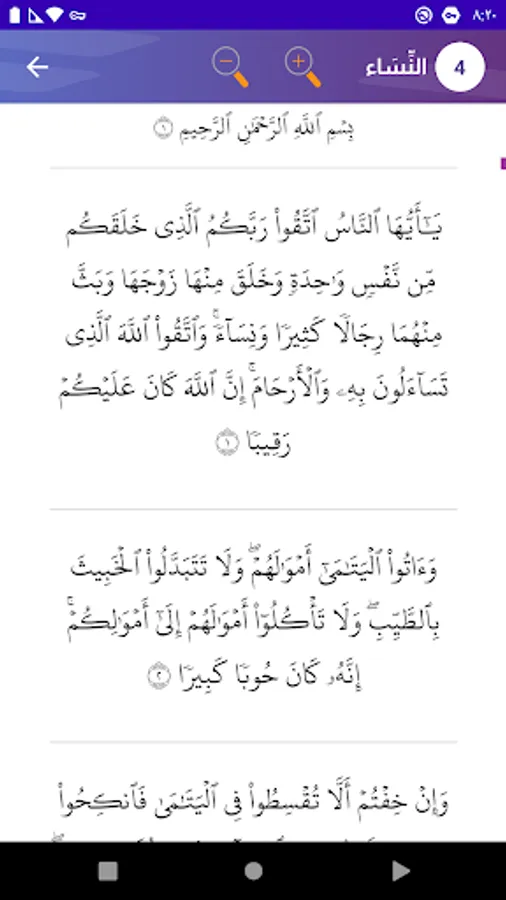 ٨:٢٠
4 النِّسَاء
بِسۡمِ ٱللَّهِ ٱلرَّحۡمَٰنِ ٱلرَّحِيمِ ١
يَـٰٓأَيُّهَا ٱلنَّاسُ ٱتَّقُواْ رَبَّكُمُ ٱلَّذِي خَلَقَكُم
مِّن نَّفۡسٖ وَٰحِدَةٖ وَخَلَقَ مِنۡهَا زَوۡجَهَا وَبَثَّ
مِنۡهُمَا رِجَالٗا كَثِيرٗا وَنِسَآءٗۚ وَٱتَّقُواْ ٱللَّهَ ٱلَّذِي
تَسَآءَلُونَ بِهِۦ وَٱلۡأَرۡحَامَۚ إِنَّ ٱللَّهَ كَانَ عَلَيۡكُمۡ
رَقِيبٗا ١
وَءَاتُواْ ٱلۡيَتَٰمَىٰٓ أَمۡوَٰلَهُمۡۖ وَلَا تَتَبَدَّلُواْ ٱلۡخَبِيثَ
بِٱلطَّيِّبِۖ وَلَا تَأۡكُلُوٓاْ أَمۡوَٰلَهُمۡ إِلَىٰٓ أَمۡوَٰلِكُمۡۚ
إِنَّهُۥ كَانَ حُوبٗا كَبِيرٗا ٢
وَإِنۡ خِفۡتُمۡ أَلَّا تُقۡسِطُواْ فِي ٱلۡيَتَٰمَىٰ فَٱنكِحُواْ